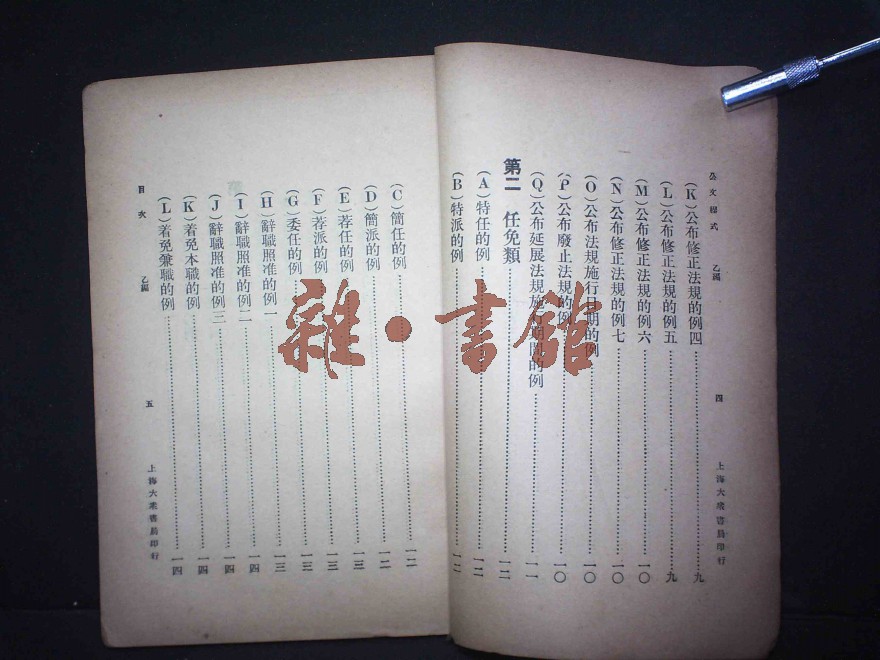 公文程式　乙編　四　上海大衆書局印行
(K)公布修正法規的例四……九
(L)公布修正法規的例五……九
(M)公布修正法規的例六……一〇
(N)公布修正法規的例七……一〇
(O)公布法規施行日期的例……一〇
(P)公布廢止法規的例……一〇
(Q)公布延展法規施行期間的例……一一
第二　任免類……一二
(A)特任的例……一二
(B)特派的例……一二
(C)簡任的例……一二
(D)簡派的例……一二
(E)荐任的例……一三
(F)荐派的例……一三
(G)委任的例……一三
(H)辭職照准的例一……一三
(I)辭職照准的例二……一四
(J)辭職照准的例三……一四
(K)着免本職的例……一四
(L)着免兼職的例……一四
目次　乙編　五　上海大衆書局印行
雜·書館